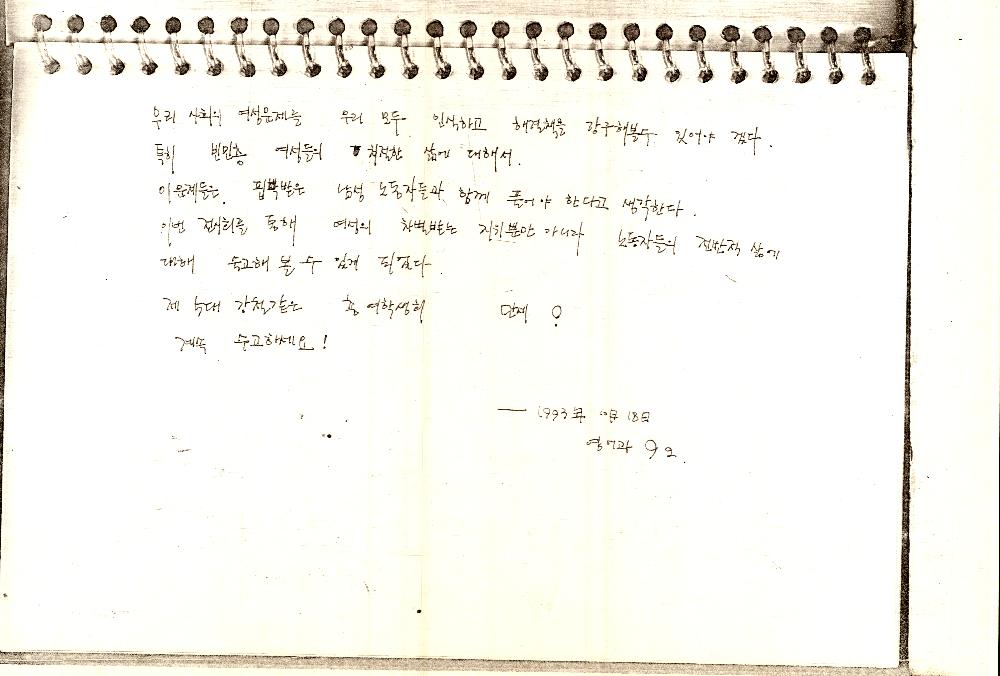 우리 사회의 여성문제를 우리 모두 인식하고 해결책을 강구해볼수 있어야 겠다.
특히 빈민층 여성들의 처절한 삶에 대해서.
이 문제들은 핍박받은 남성 노동자들과 함께 풀어야 한다고 생각한다.
이번 전시회를 통해 여성의 차별받는 지위뿐만 아니라 노동자들의 전반적 삶에
대해 숙고해 볼 수 있게 된다.
강철같은 총여학생회 단결
계속 수고하세요!
— 1993年 18日
영어과